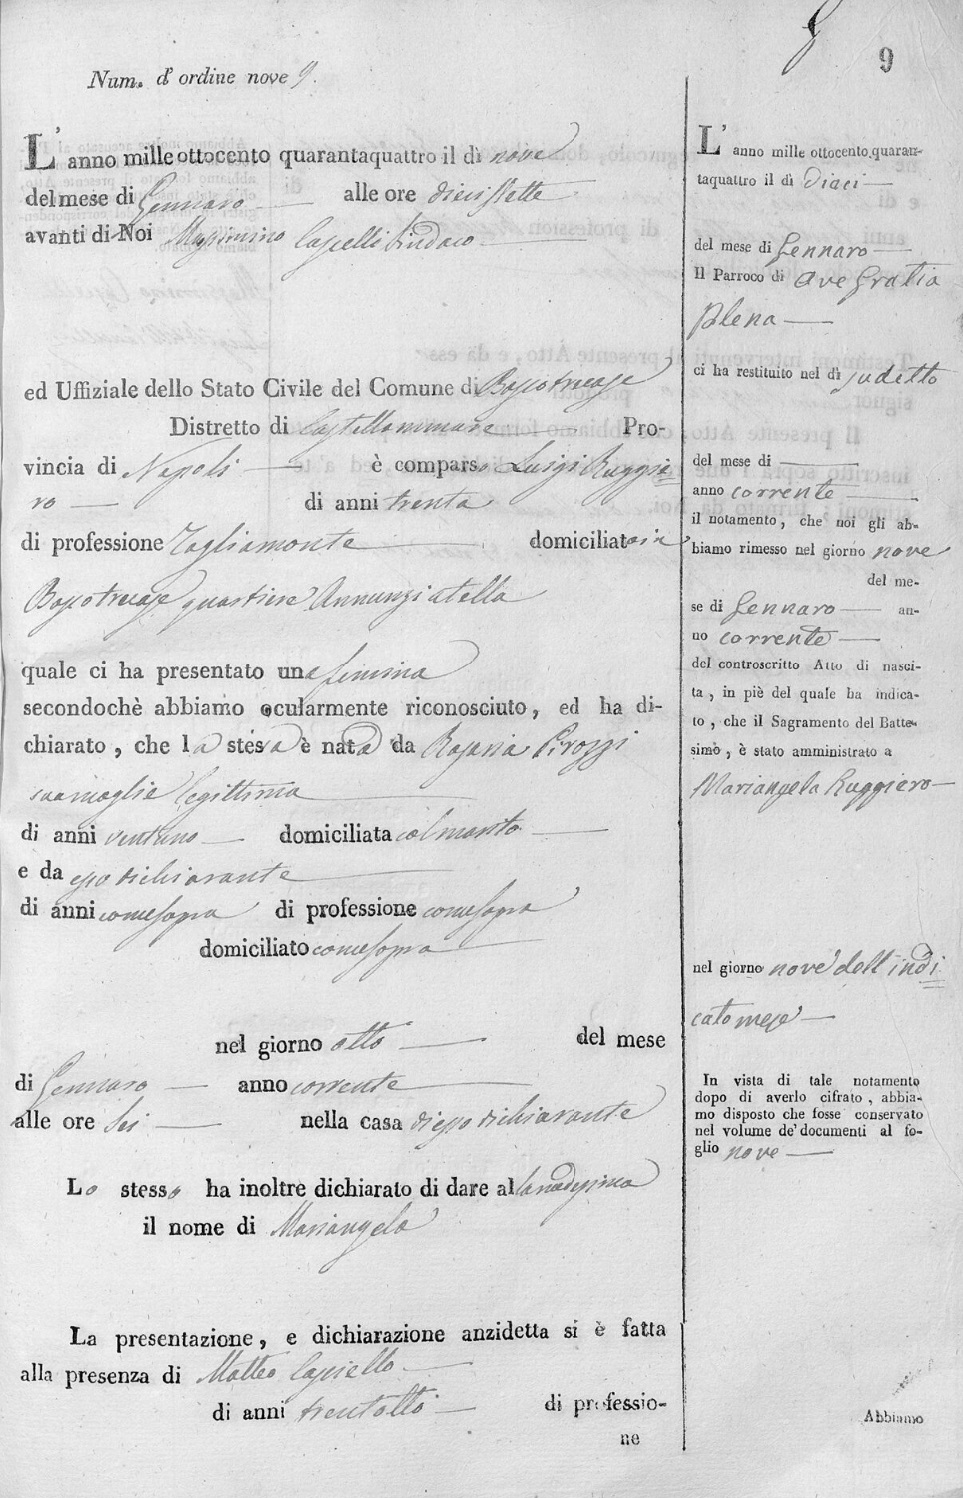 9
Num. d' ordine nove 9.
L' anno mille ottocento quarantaquattro il dì nove
del mese di Gennaro alle ore diecissette
avanti di Noi Massimino Capelli Sindaco
ed Uffiziale dello Stato Civile del Comune di Boscotrecase
Distretto di Castellammare Pro-
vincia di Napoli è comparso Luigi Ruggie
ro di anni trenta
di professione Tagliamonte domiciliato in
Boscotrecase quartiere Annunziatella
quale ci ha presentato una femina
secondochè abbiamo ocularmente riconosciuto, ed ha di-
chiarato, che la stessa è nata da Rosaria Pirozzi
sua moglie legittima
di anni ventuno domiciliata col marito
e da esso dichiarante
di anni come sopra di professione come sopra
domiciliato come sopra
nel giorno otto del mese
di Gennaro anno corrente
alle ore sei nella casa di esso dichiarante
Lo stesso ha inoltre dichiarato di dare alla medesima
il nome di Mariangela
La presentazione, e dichiarazione anzidetta si è fatta
alla presenza di Matteo
di anni trentotto di professio-
ne
L' anno mille ottocento quaran-
taquattro il dì dieci
del mese di Gennaro
Il Parroco di Ave Gratia
Plena
ci ha restituito nel dì sudetto
del mese di
anno corrente
il notamento, che noi gli ab-
biamo rimesso nel giorno nove
del me-
se di Gennaro an-
no corrente
del controscritto Atto di nasci-
ta, in piè del quale ha indica-
to, che il Sagramento del Batte-
simo, è stato amministrato a
Mariangela Ruggiero
nel giorno nove dell'indi
cato mese
In vista di tale notamento
dopo di averlo cifrato, abbia-
mo disposto che fosse conservato
nel volume de' documenti al fo-
glio nove
Abbiamo